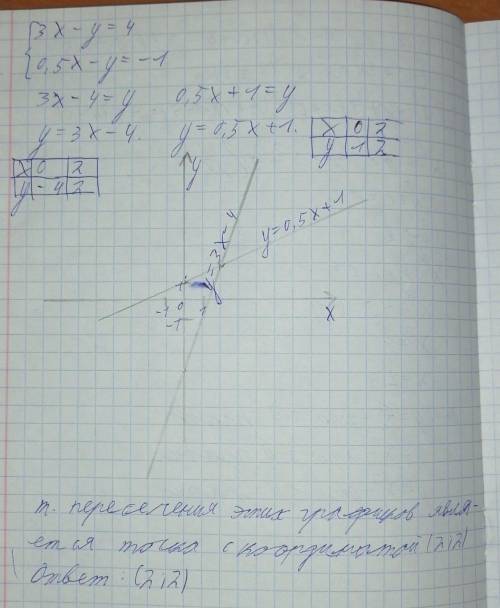 3x - y = 4
0,5x - y = -1
3x - 4 = y 0,5x + 1 = y
y = 3x - 4. y = 0,5x + 1.
x 0 2
y 1 2
x 0 2
y -4 2
y
y = 3x - 4
y = 0,5x + 1
1
-1 0 1 x
-1
т. пересечения этих графицов явля-
ется точка с координатой (2;2)
Ответ: (2;2)